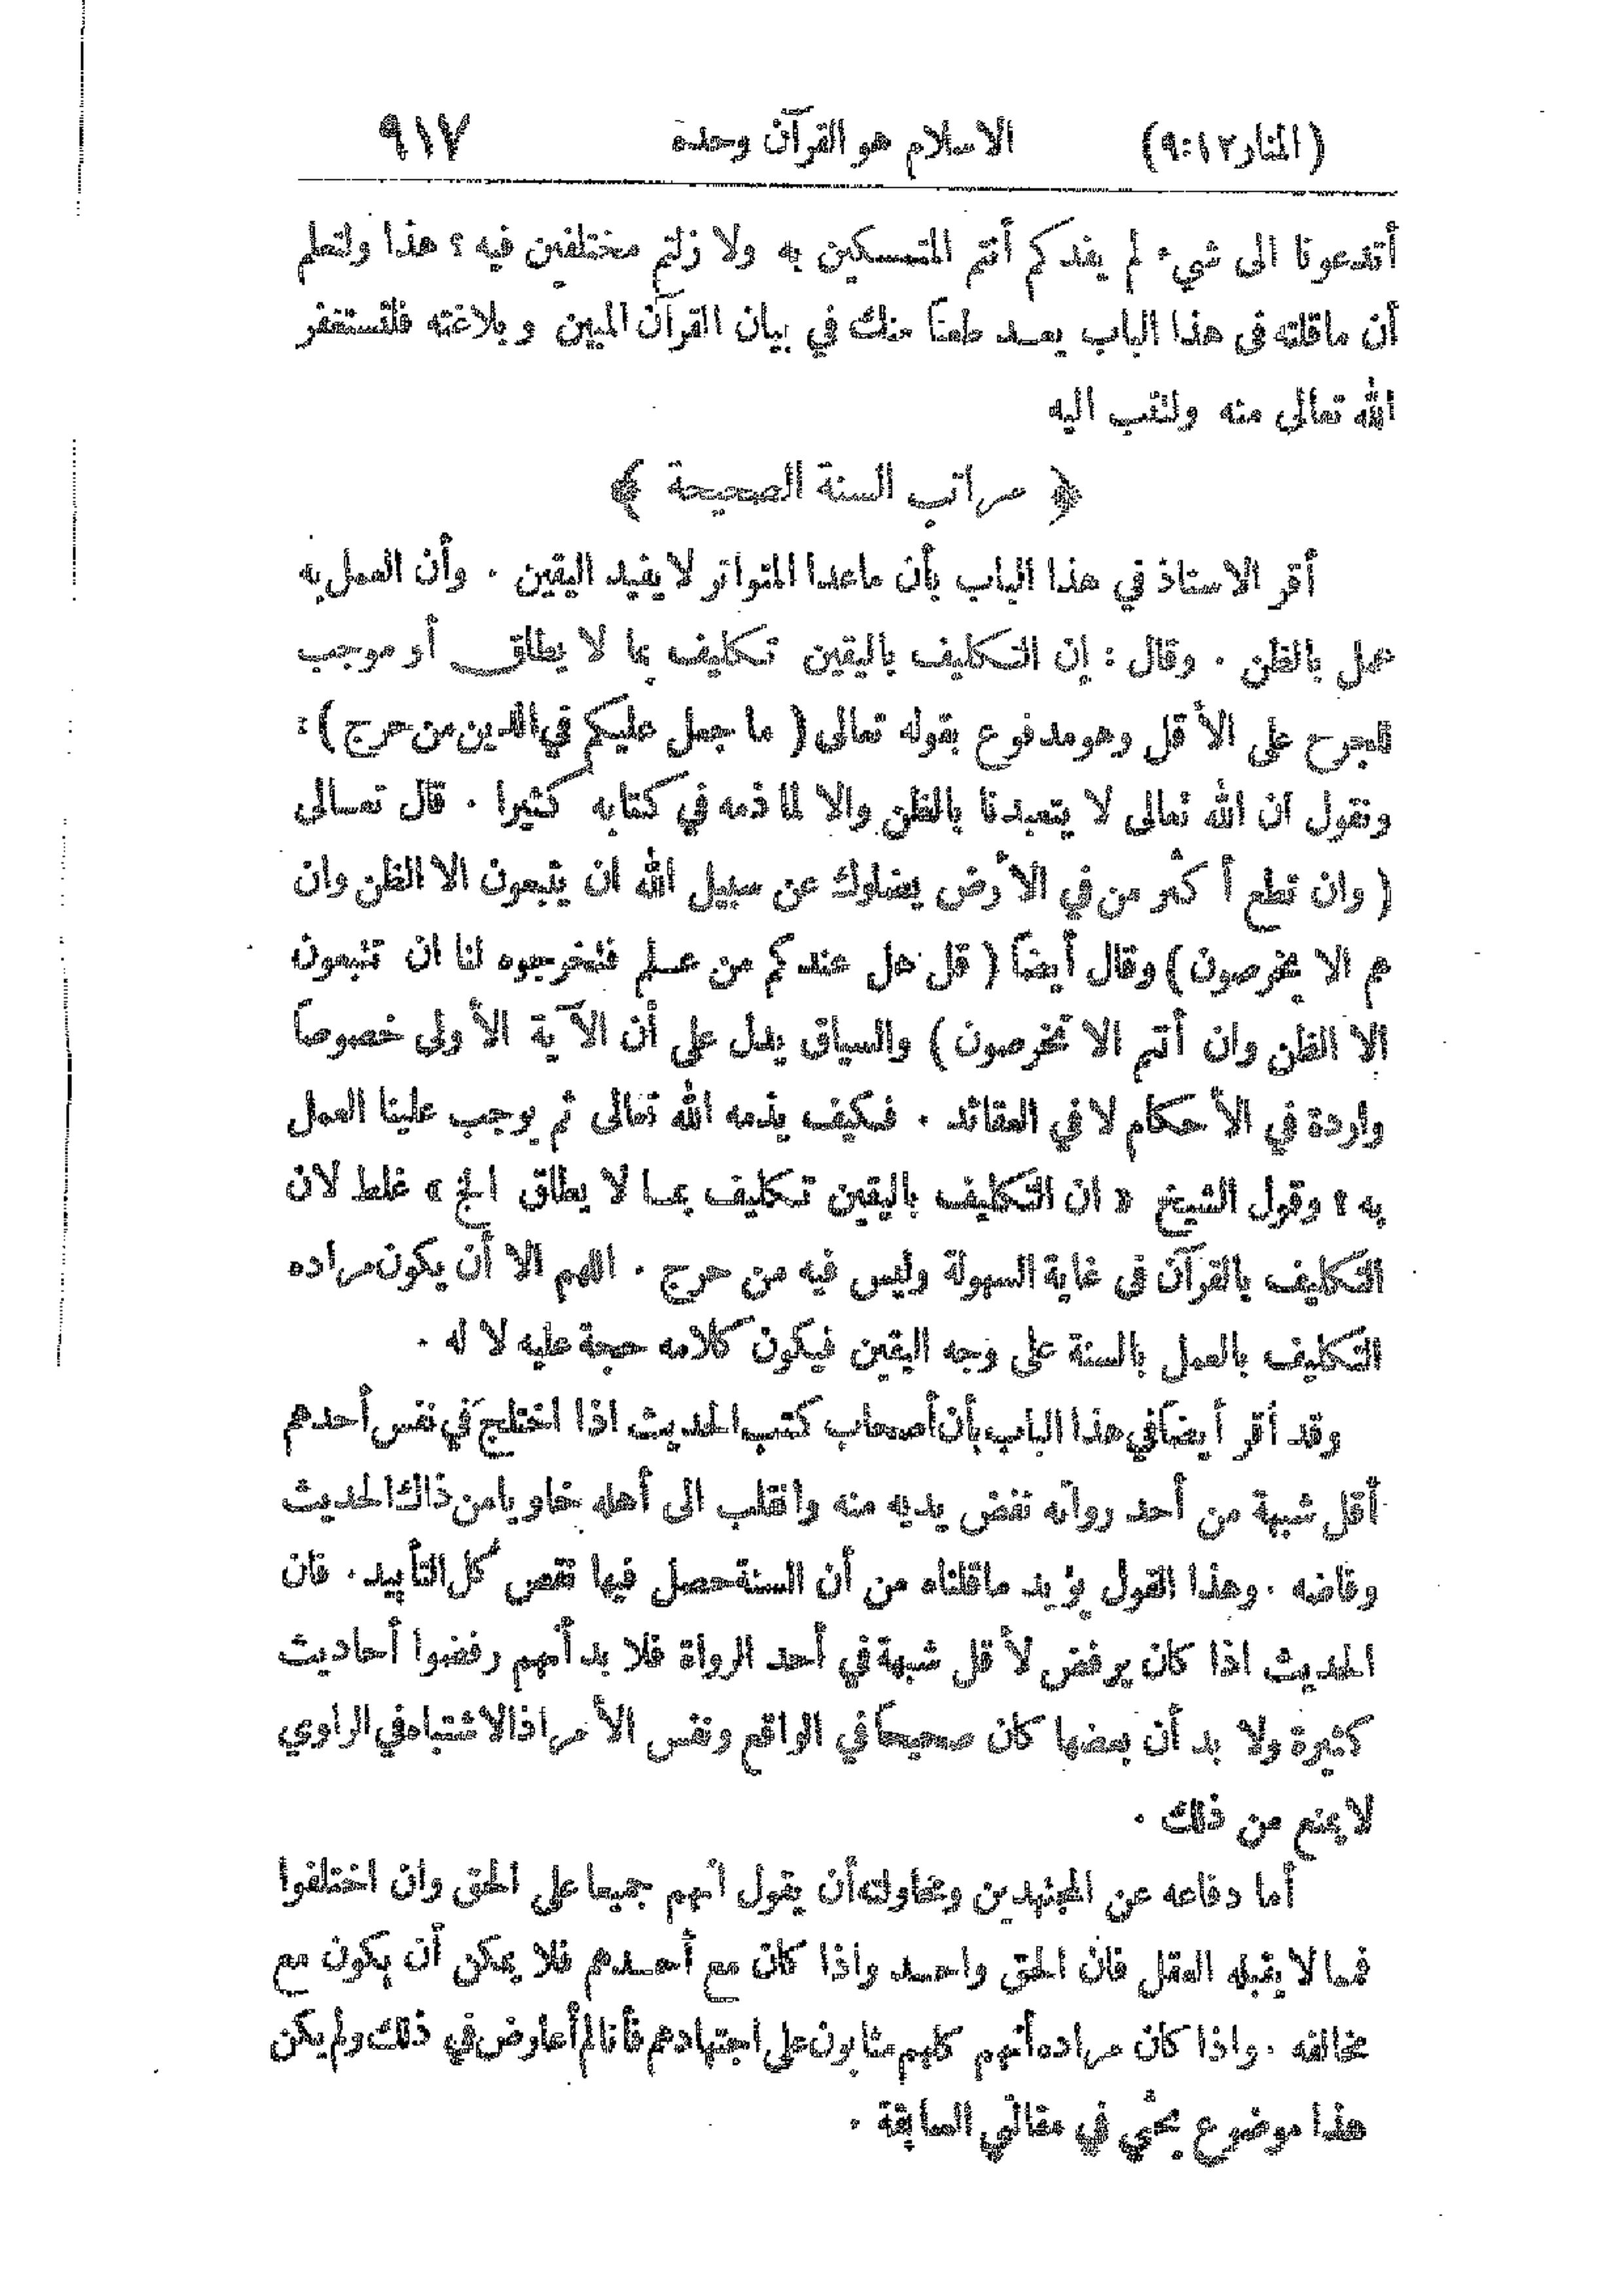 (المنار ١٢:٩) الاسلام هو القرآن وحده ٩١٧
أتدعونا الى شيء لم يفدكم أنتم المتمسكين به ولا زلتم مختلفين فيه ؟ هذا ولتعلم
أن ماقلته في هذا الباب يعد طعنًا منك في بيان القرآن المبين وبلاغته فلتستغفر
الله تعالى منه ولتتب اليه
﴿ مراتب السنة الصحيحة ﴾
أقر الاستاذ في هذا الباب بأن ماعدا المتواتر لا يفيد اليقين . وأن العمل به
عمل بالظن . وقال : إن التكليف باليقين تكليف بما لا يطاق أو موجب
للجرح على الأقل وهو مدفوع بقوله تعالى ( ما جعل عليكم في الدين من حرج ) :
ونقول ان الله تعالى لا يتعبدنا بالظن والا لما ذمه في كتابه كثيرا . قال تعالى
( وان تطع أكثر من في الأرض يضلوك عن سبيل الله ان يتبعون الا الظن وان
هم الا يخرصون ) وقال أيضًا ( قل هل عندكم من علم فتخرجوه لنا ان تتبعون
الا الظن وان أنتم الا تخرصون ) والسياق يدل على أن الآية الأولى خصوصًا
واردة في الأحكام لا في العقائد . فكيف يذمه الله تعالى ثم يوجب علينا العمل
به ؟ وقول الشيخ « ان التكليف باليقين تكليف بما لا يطاق الخ » غلط لان
التكليف بالقرآن في غاية السهولة وليس فيه من حرج . اللهم الا أن يكون مراده
التكليف بالعمل بالسنة على وجه اليقين فيكون كلامه حجة عليه لا له .
وقد أقر أيضًا في هذا الباب بأن أصحاب كتب الحديث اذا اختلج في نفس أحدهم
أقل شبهة من أحد رواته نفض يديه منه وانقلب الى أهله خاويا من ذاك الحديث
وفاضه . وهذا القول يؤيد ماقلناه من أن السنة حصل فيها نقص كل التأييد . فان
الحديث اذا كان يرفض لأقل شبهة في أحد الرواة فلا بد أنهم رفضوا أحاديث
كثيرة ولا بد أن بعضها كان صحيحًا في الواقع ونفس الأمر اذ الاشتباه في الراوي
لا يمنع من ذلك .
أما دفاعه عن المجتهدين ومحاولته أن يقول انهم جميعا على الحق وان اختلفوا
فمما لا يقبله العقل فان الحق واحد واذا كان مع أحدهم فلا يمكن أن يكون مع
مخالفه . واذا كان مراده أنهم كلهم مثابون على اجتهادهم فأنا لم أعارض في ذلك ولم يكن
هذا موضوع بحثي في مقالتي السابقة .